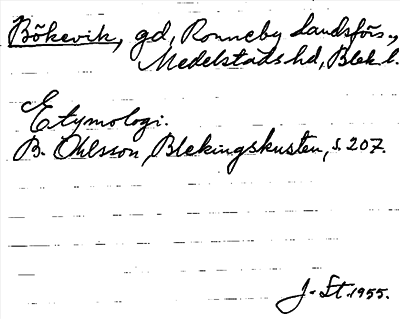 Bökevik, gd, Ronneby landsförs.,
Medelstads hd, Blek l.
Etymologi.
B. Ohlsson, Blekingskusten, s. 207.
J-St. 1955.